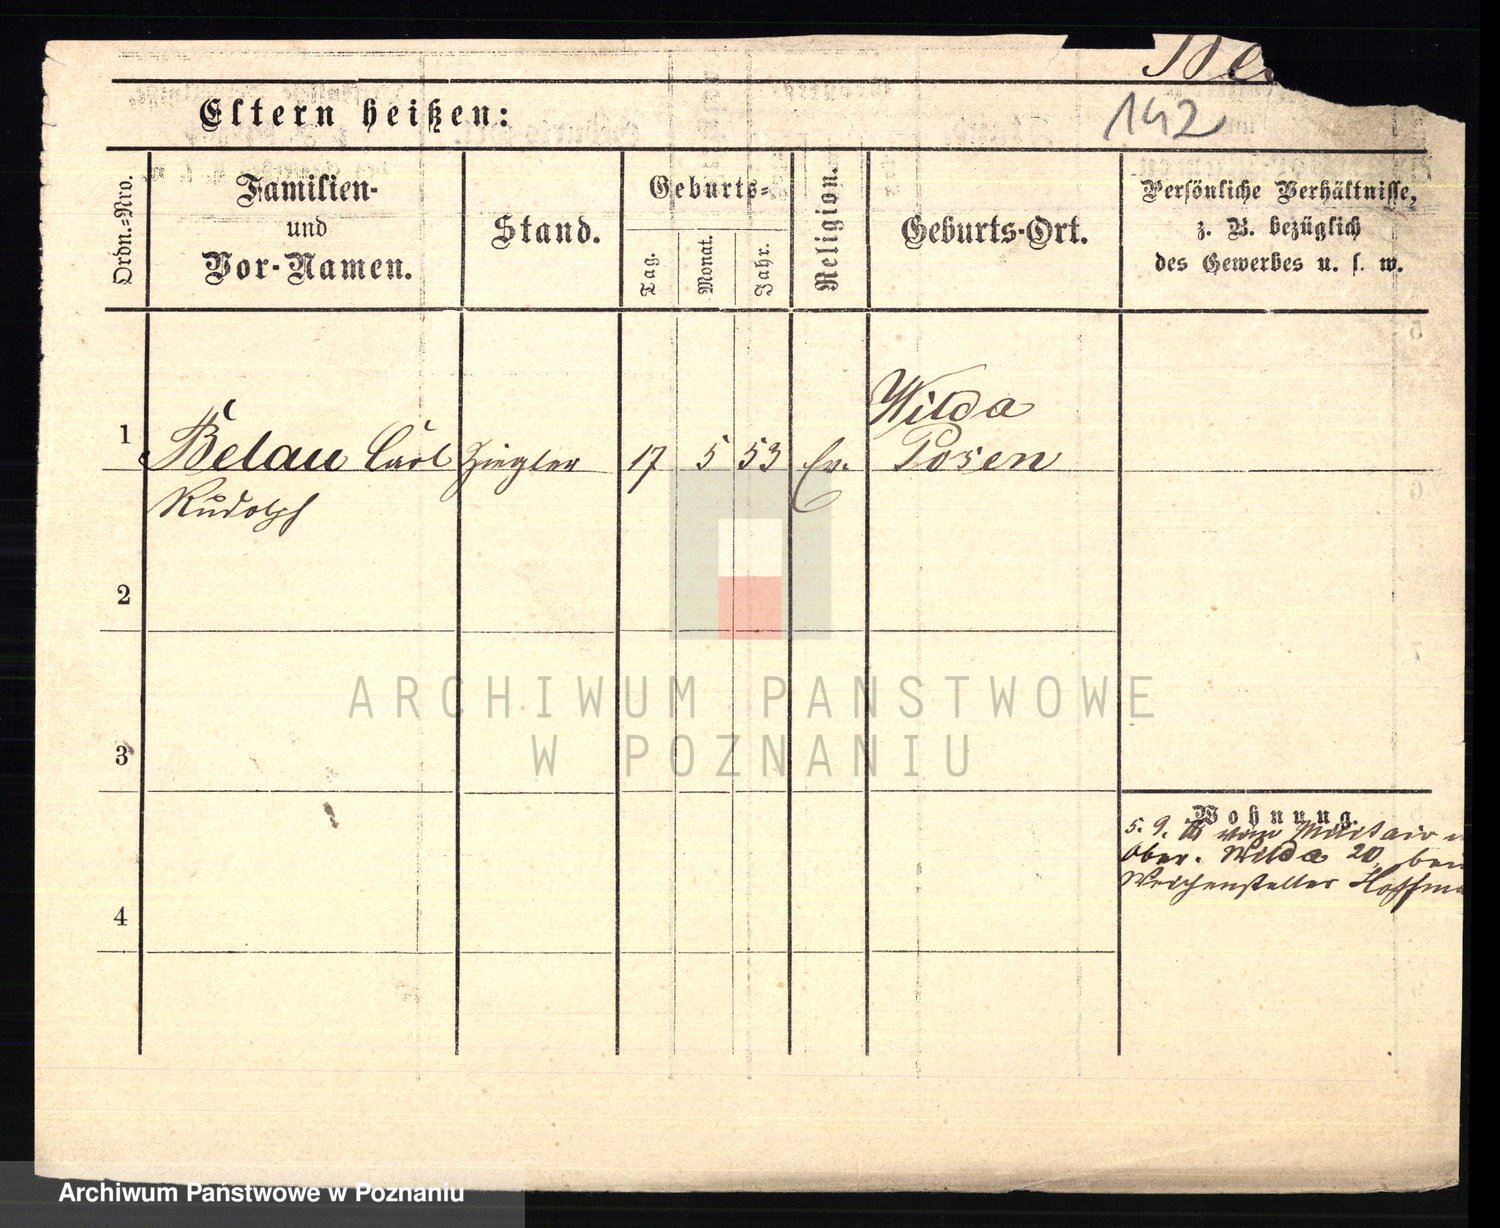 Be
142
Eltern heißen:
Ordn.-Nro.
Familien-
und
Vor-Namen.
Stand.
Geburts-
Tag.
Monat.
Jahr.
Religion.
Geburts-Ort.
Persönliche Verhältnisse,
z. B. bezüglich
des Gewerbes u. s. w.
1
Belau Carl
Rudolph
Ziegler
17
5
53
Ev.
Wilda
Posen
2
3
4
Wohnung.
5. 9. 76 vom Militair
Ober. Wilda 20, beim
Weichensteller Hoffma
ARCHIWUM PAŃSTWOWE
W POZNANIU
Archiwum Państwowe w Poznaniu